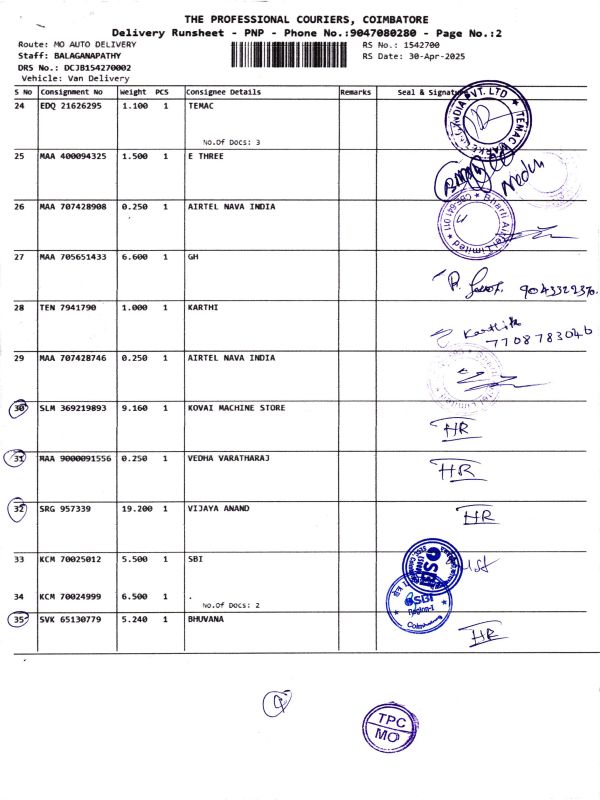 THE PROFESSIONAL COURIERS, COIMBATORE
Delivery Runsheet - PNP - Phone No.:9047080280 - Page No.:2
Route: MO AUTO DELIVERY RS No.: 1542700
Staff: BALAGANAPATHY RS Date: 30-Apr-2025
DRS No.: DCJB154270002
Vehicle: Van Delivery
S No Consignment No Weight PCS Consignee Details Remarks Seal & Signature
24 EDQ 21626295 1.100 1 TEMAC
No.Of Docs: 3
25 MAA 400094325 1.500 1 E THREE
26 MAA 707428908 0.250 1 AIRTEL NAVA INDIA
Bharti Airtel Limited
27 MAA 705651433 6.600 1 GH
28 TEN 7941790 1.000 1 KARTHI
Karthik
7708783046
29 MAA 707428746 0.250 1 AIRTEL NAVA INDIA
30 SLM 369219893 9.160 1 KOVAI MACHINE STORE
HR
31 MAA 9000091556 0.250 1 VEDHA VARATHARAJ
HR
32 SRG 957339 19.200 1 VIJAYA ANAND
HR
33 KCM 70025012 5.500 1 SBI
SBI
34 KCM 70024999 6.500 1 .
No.Of Docs: 2
SBI
Region-I
35 SVK 65130779 5.240 1 BHUVANA
HR
TPC
MO